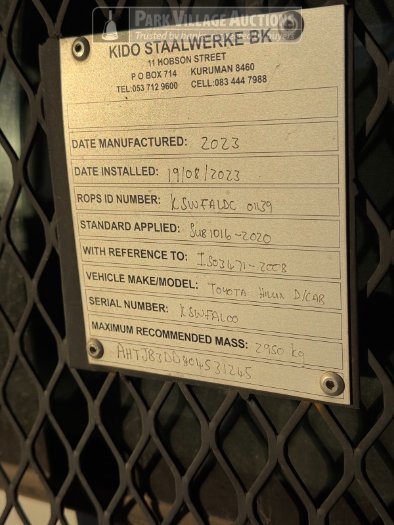 PARK VILLAGE AUCTIONS
KIDO STAALWERKE BK
11 HOBSON STREET
P O BOX 714 KURUMAN 8460
TEL:053 712 9600 CELL:083 444 7988
DATE MANUFACTURED: 2023
DATE INSTALLED: 19/08/2023
ROPS ID NUMBER: KSWFALDC 01139
STANDARD APPLIED: SUB1016-2020
WITH REFERENCE TO: ISO3471-2008
VEHICLE MAKE/MODEL: TOYOTA HILUX D/CAB
SERIAL NUMBER: KSWFAL00
MAXIMUM RECOMMENDED MASS: 2950 kg
AHTJB3DD804531245